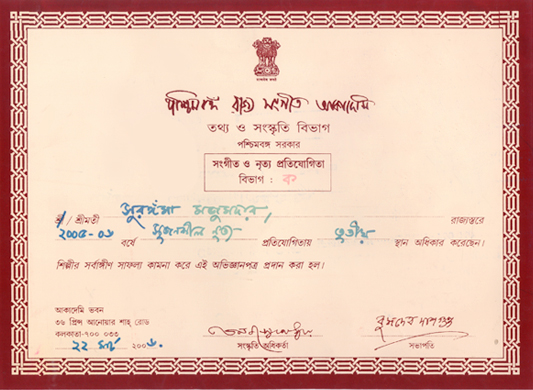 পশ্চিমবঙ্গ রাজ্য সংগীত আকাদেমি
তথ্য ও সংস্কৃতি বিভাগ
পশ্চিমবঙ্গ সরকার
সংগীত ও নৃত্য প্রতিযোগিতা
বিভাগ : ক
শ্রী / শ্রীমতী সুরঙ্গমা মজুমদার, রাজ্যস্তরে
২০০৫-০৬ বর্ষে সৃজনশীল নৃত্য প্রতিযোগিতায় তৃতীয় স্থান অধিকার করেছেন।
শিল্পীর সর্বাঙ্গীণ সাফল্য কামনা করে এই অভিজ্ঞানপত্র প্রদান করা হল।
আকাদেমি ভবন
৩৬ প্রিন্স আনোয়ার শাহ্ রোড
কলকাতা-৭০০ ০৩৩
২২ মার্চ ২০০৬.
সংস্কৃতি অধিকর্তা
বুদ্ধদেব দাশগুপ্ত
সভাপতি